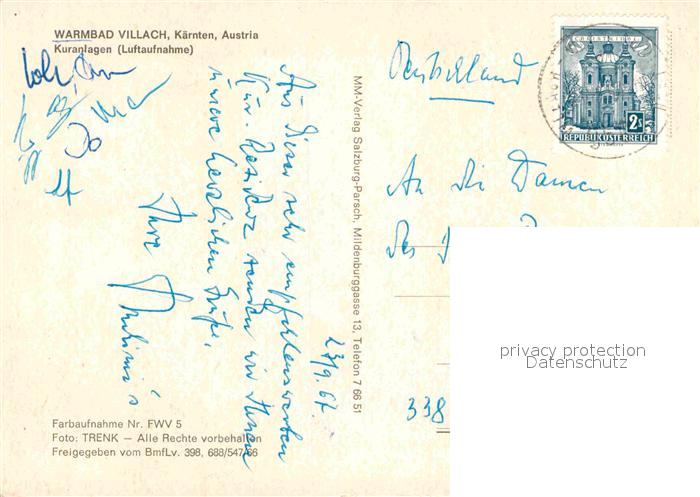 WARMBAD VILLACH, Kärnten, Austria
Kuranlagen (Luftaufnahme)
Aus dieser sehr empfehlenswerten
Kur-Residenz senden wir Ihnen
unsere herzlichen Grüße.
Ihre
23/9.67.
MM-Verlag Salzburg-Parsch, Mildenburggasse 13, Telefon 7 66 51
Deutschland
CHRISTKINDL
2S
REPUBLIK ÖSTERREICH
An die Damen
des
338
privacy protection
Datenschutz
Farbaufnahme Nr. FWV 5
Foto: TRENK — Alle Rechte vorbehalten
Freigegeben vom BmfLv. 398, 688/547/66